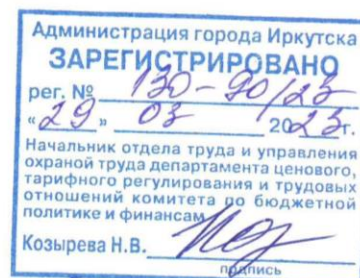 Администрация города Иркутска
ЗАРЕГИСТРИРОВАНО
рег. № 130-90/23
«29» 03 2023г.
Начальник отдела труда и управления
охраной труда департамента ценового,
тарифного регулирования и трудовых
отношений комитета по бюджетной
политике и финансам
Козырева Н.В.
подпись